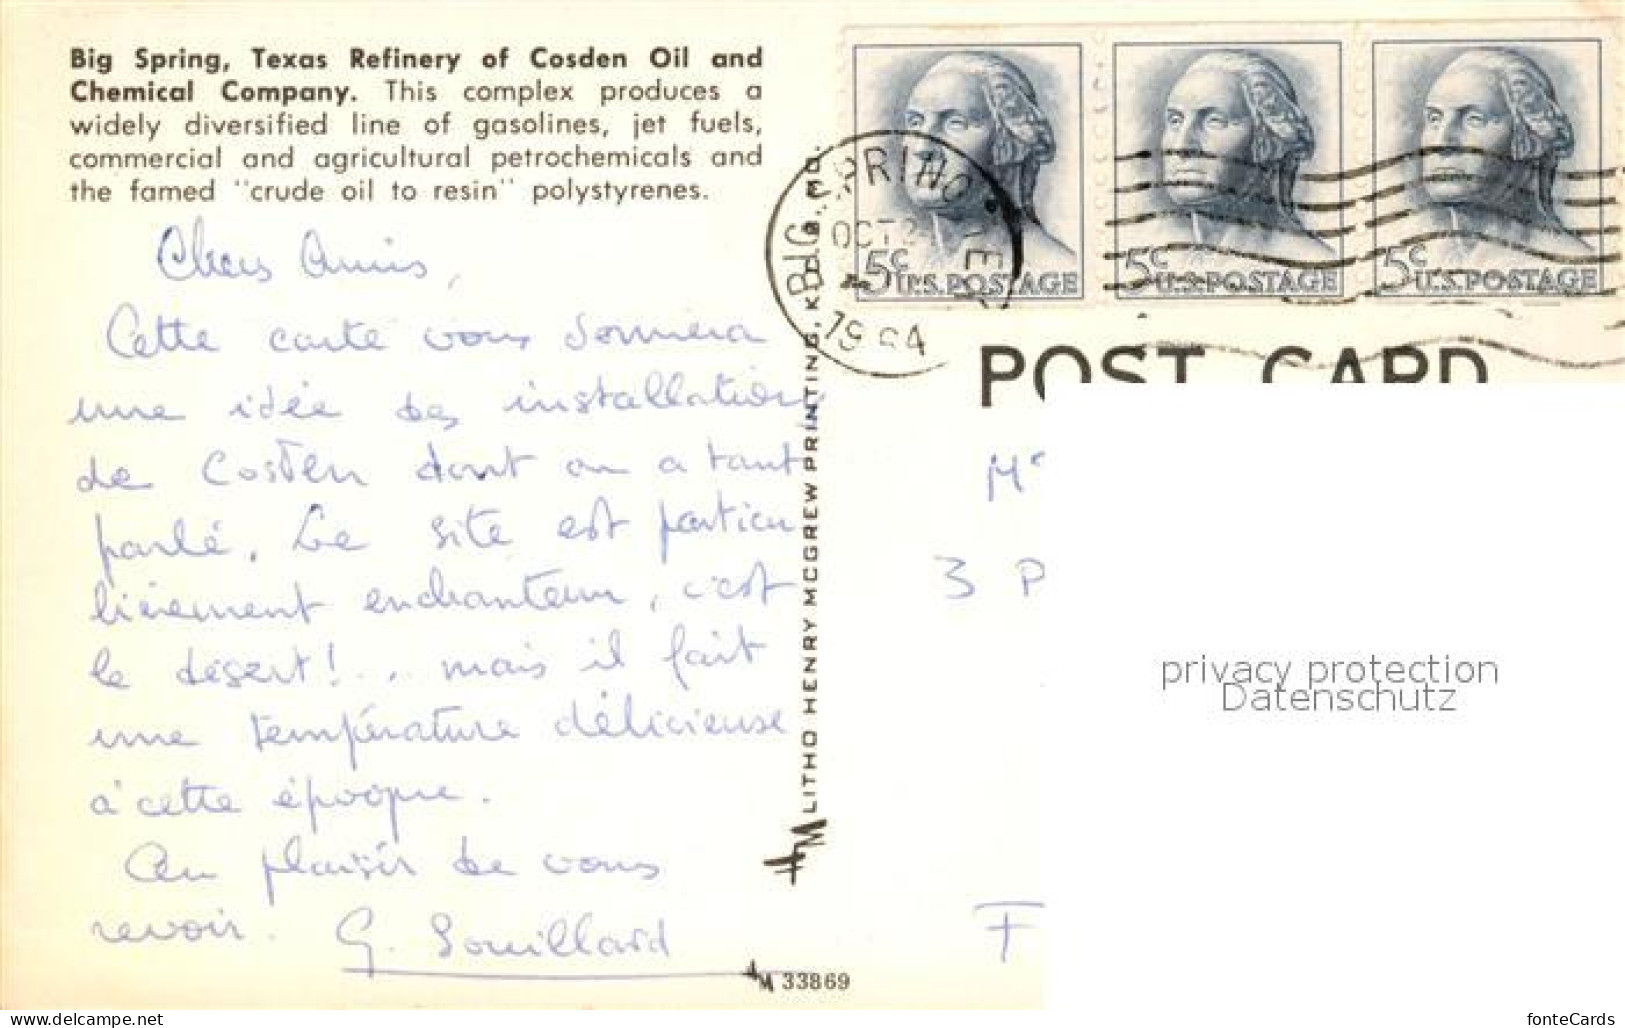 Big Spring, Texas Refinery of Cosden Oil and
Chemical Company. This complex produces a
widely diversified line of gasolines, jet fuels,
commercial and agricultural petrochemicals and
the famed "crude oil to resin" polystyrenes.
Chers Amis,
Cette carte vous donnera
une idée des installations
de Cosden dont on a tant
parlé. Le site est particu
lièrement enchanteur, c'est
le désert!... mais il fait
une température délicieuse
à cette époque.
Au plaisir de vous
revoir. G. Souillard
LITHO HENRY McGREW PRINTING, K. C. 8, MO.
HM 33869
BIG SPRING
OCT
1964
5c U.S. POSTAGE
5c U.S. POSTAGE
5c U.S. POSTAGE
POST CARD
Mr
3 P
F
privacy protection
Datenschutz
www.delcampe.net
fonteCards